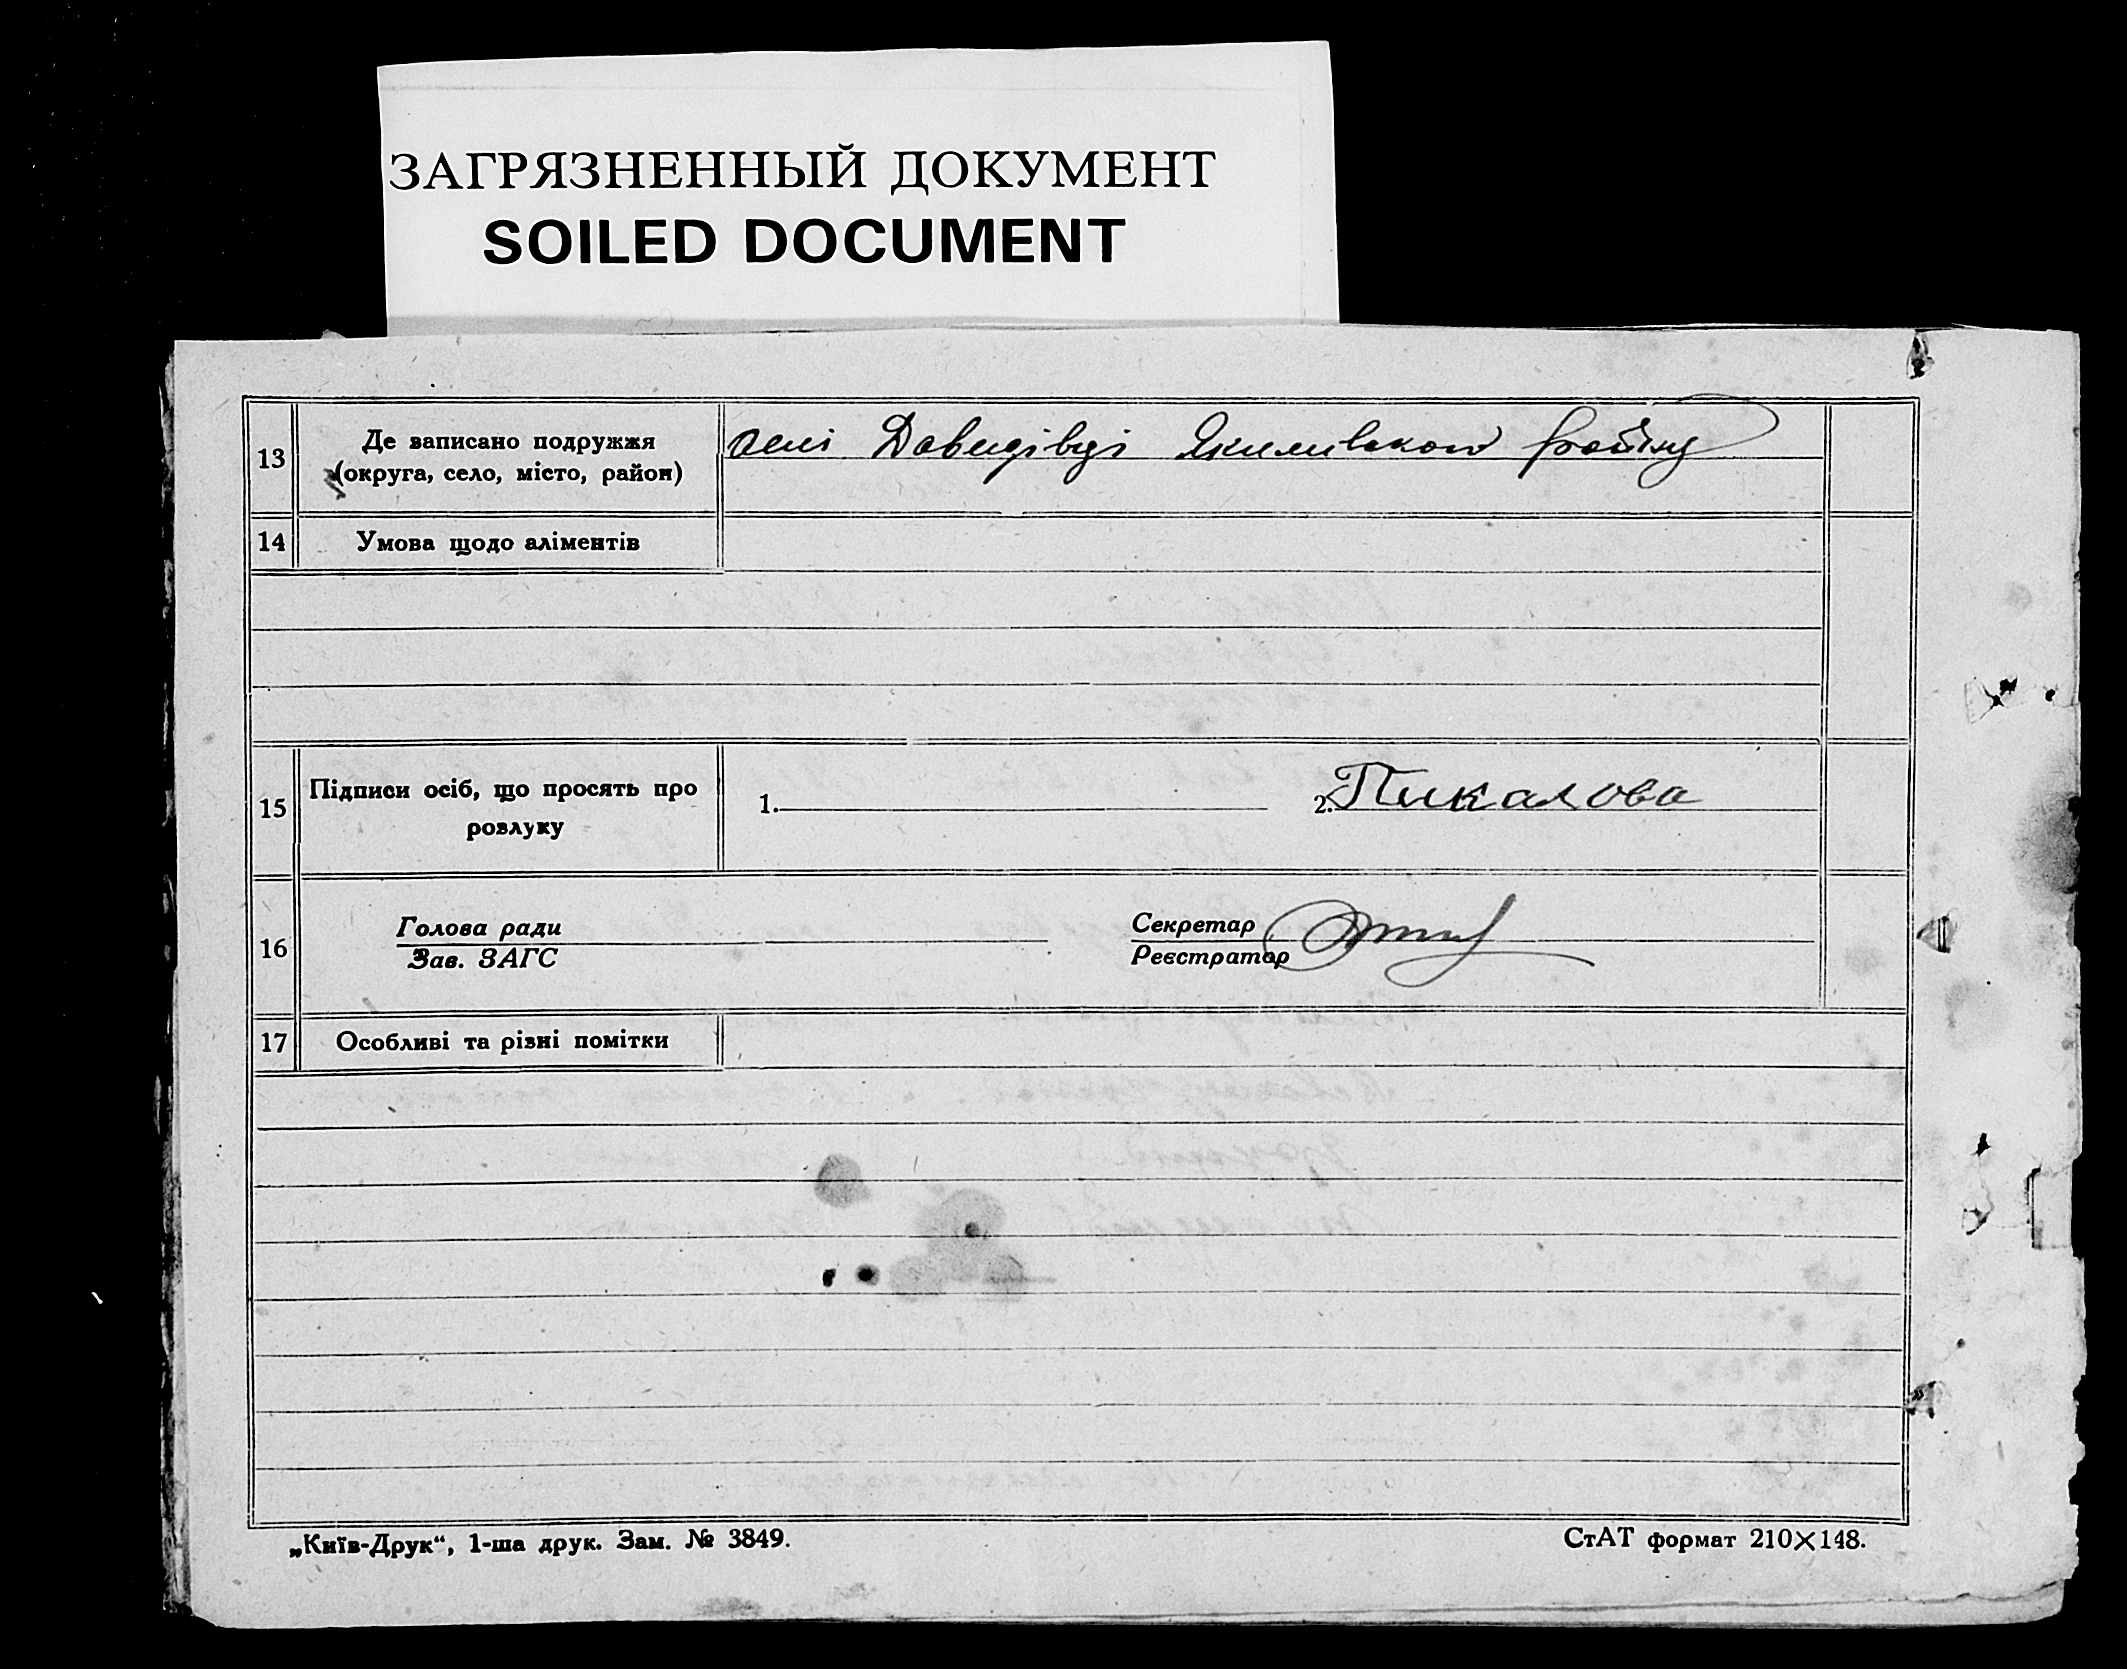 ЗАГРЯЗНЕННЫЙ ДОКУМЕНТ
SOILED DOCUMENT
13 Де записано подружжя
(округа, село, місто, район)
селі Давидівці Якимівського району
14 Умова щодо аліментів
15 Підписи осіб, що просять про
розлуку
1. 2. Пикалова
16 Голова ради
Зав. ЗАГС
Секретар
Реєстратор
17 Особливі та різні помітки
„Київ-Друк“, 1-ша друк. Зам. № 3849.
СтАТ формат 210×148.